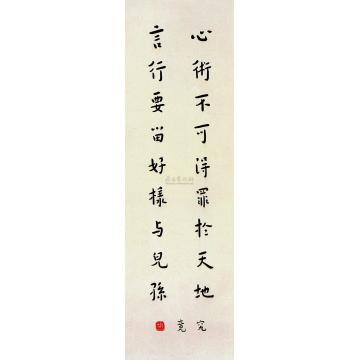 心術不可得罪於天地
言行要留好樣与兒孫
究竟